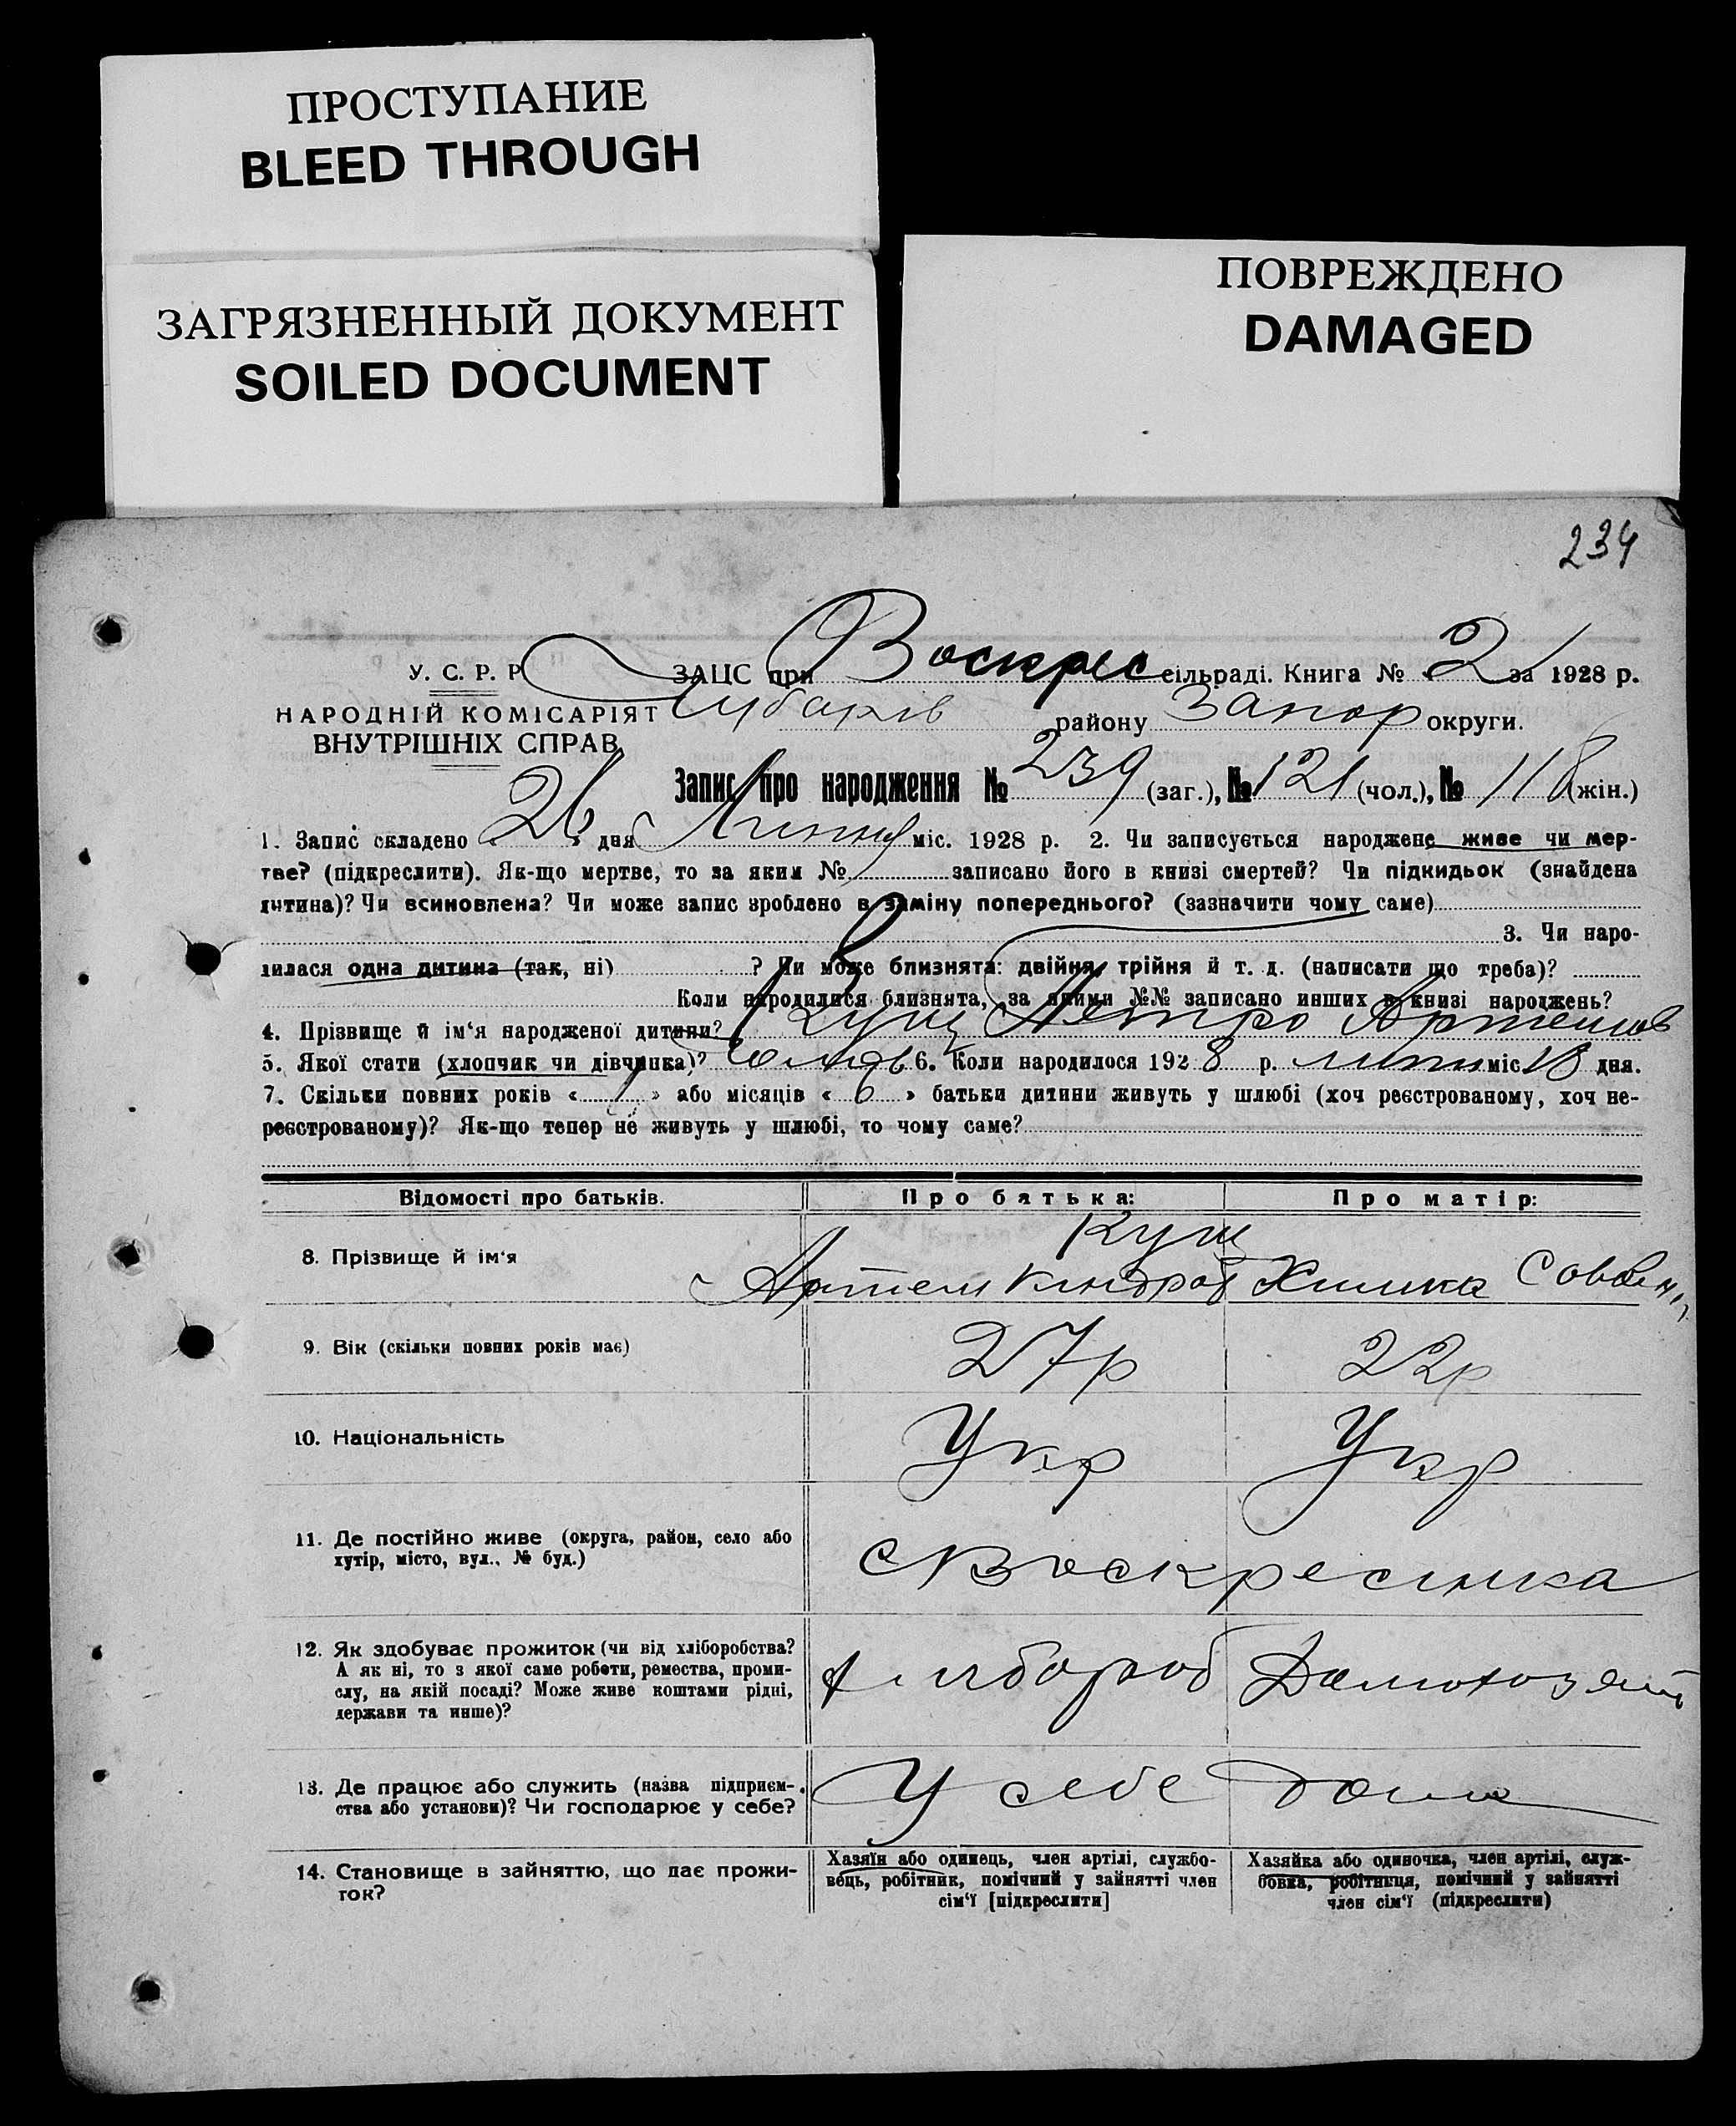 ПРОСТУПАНИЕ
BLEED THROUGH
ЗАГРЯЗНЕННЫЙ ДОКУМЕНТ
SOILED DOCUMENT
ПОВРЕЖДЕНО
DAMAGED
234
У. С. Р. Р.
НАРОДНІЙ КОМІСАРІЯТ
ВНУТРІШНІХ СПРАВ
ЗАЦС при Воскрес сільраді. Книга № 2 за 1928 р.
Чубарів району Запор округи.
Запис про народження № 239 (заг.), № 121 (чол.), № 118 (жін.)
1. Запис складено 26 дня Липня міс. 1928 р. 2. Чи записується народжене живе чи мер-
тве? (підкреслити). Як-що мертве, то за яким № записано його в книзі смертей? Чи підкидьок (знайдена
дитина)? Чи всиновлена? Чи може запис зроблено в заміну попереднього? (зазначити чому саме)
3. Чи наро-
дилася одна дитина (так, ні) ? Чи може близнята: двійня, трійня й т. д. (написати що треба)?
Коли народилися близнята, за якими №№ записано инших в книзі народжень?
4. Прізвище й ім‘я народженої дитини? Кущ Петро Артемов
5. Якої стати (хлопчик чи дівчинка)? 6. Коли народилося 1928 р. липня міс. 18 дня.
7. Скільки повних років « 1 » або місяців « 6 » батьки дитини живуть у шлюбі (хоч реєстрованому, хоч не-
реєстрованому)? Як-що тепер не живуть у шлюбі, то чому саме?
Відомості про батьків. Про батька: Про матір:
Кущ
8. Прізвище й ім‘я Артем Кіндрат Химка
9. Вік (скільки повних років має) 27р 22р
10. Національність Укр Укр
11. Де постійно живе (округа, район, село або
хутір, місто, вул., № буд.) с Воскресинка
12. Як здобуває прожиток (чи від хліборобства?
А як ні, то з якої саме роботи, ремества, проми-
слу, на якій посаді? Може живе коштами рідні,
держави та инше)? Хлібороб Домохозяй
13. Де працює або служить (назва підприєм-
ства або установи)? Чи господарює у себе? У себе дома
14. Становище в зайняттю, що дає прожи-
ток?
Хазяїн або одинець, член артілі, службо-
вець, робітник, помічний у зайнятті член
сім‘ї [підкреслити]
Хазяйка або одиночка, член артілі, служ-
бовка, робітниця, помічний у зайнятті
член сім‘ї (підкреслити)